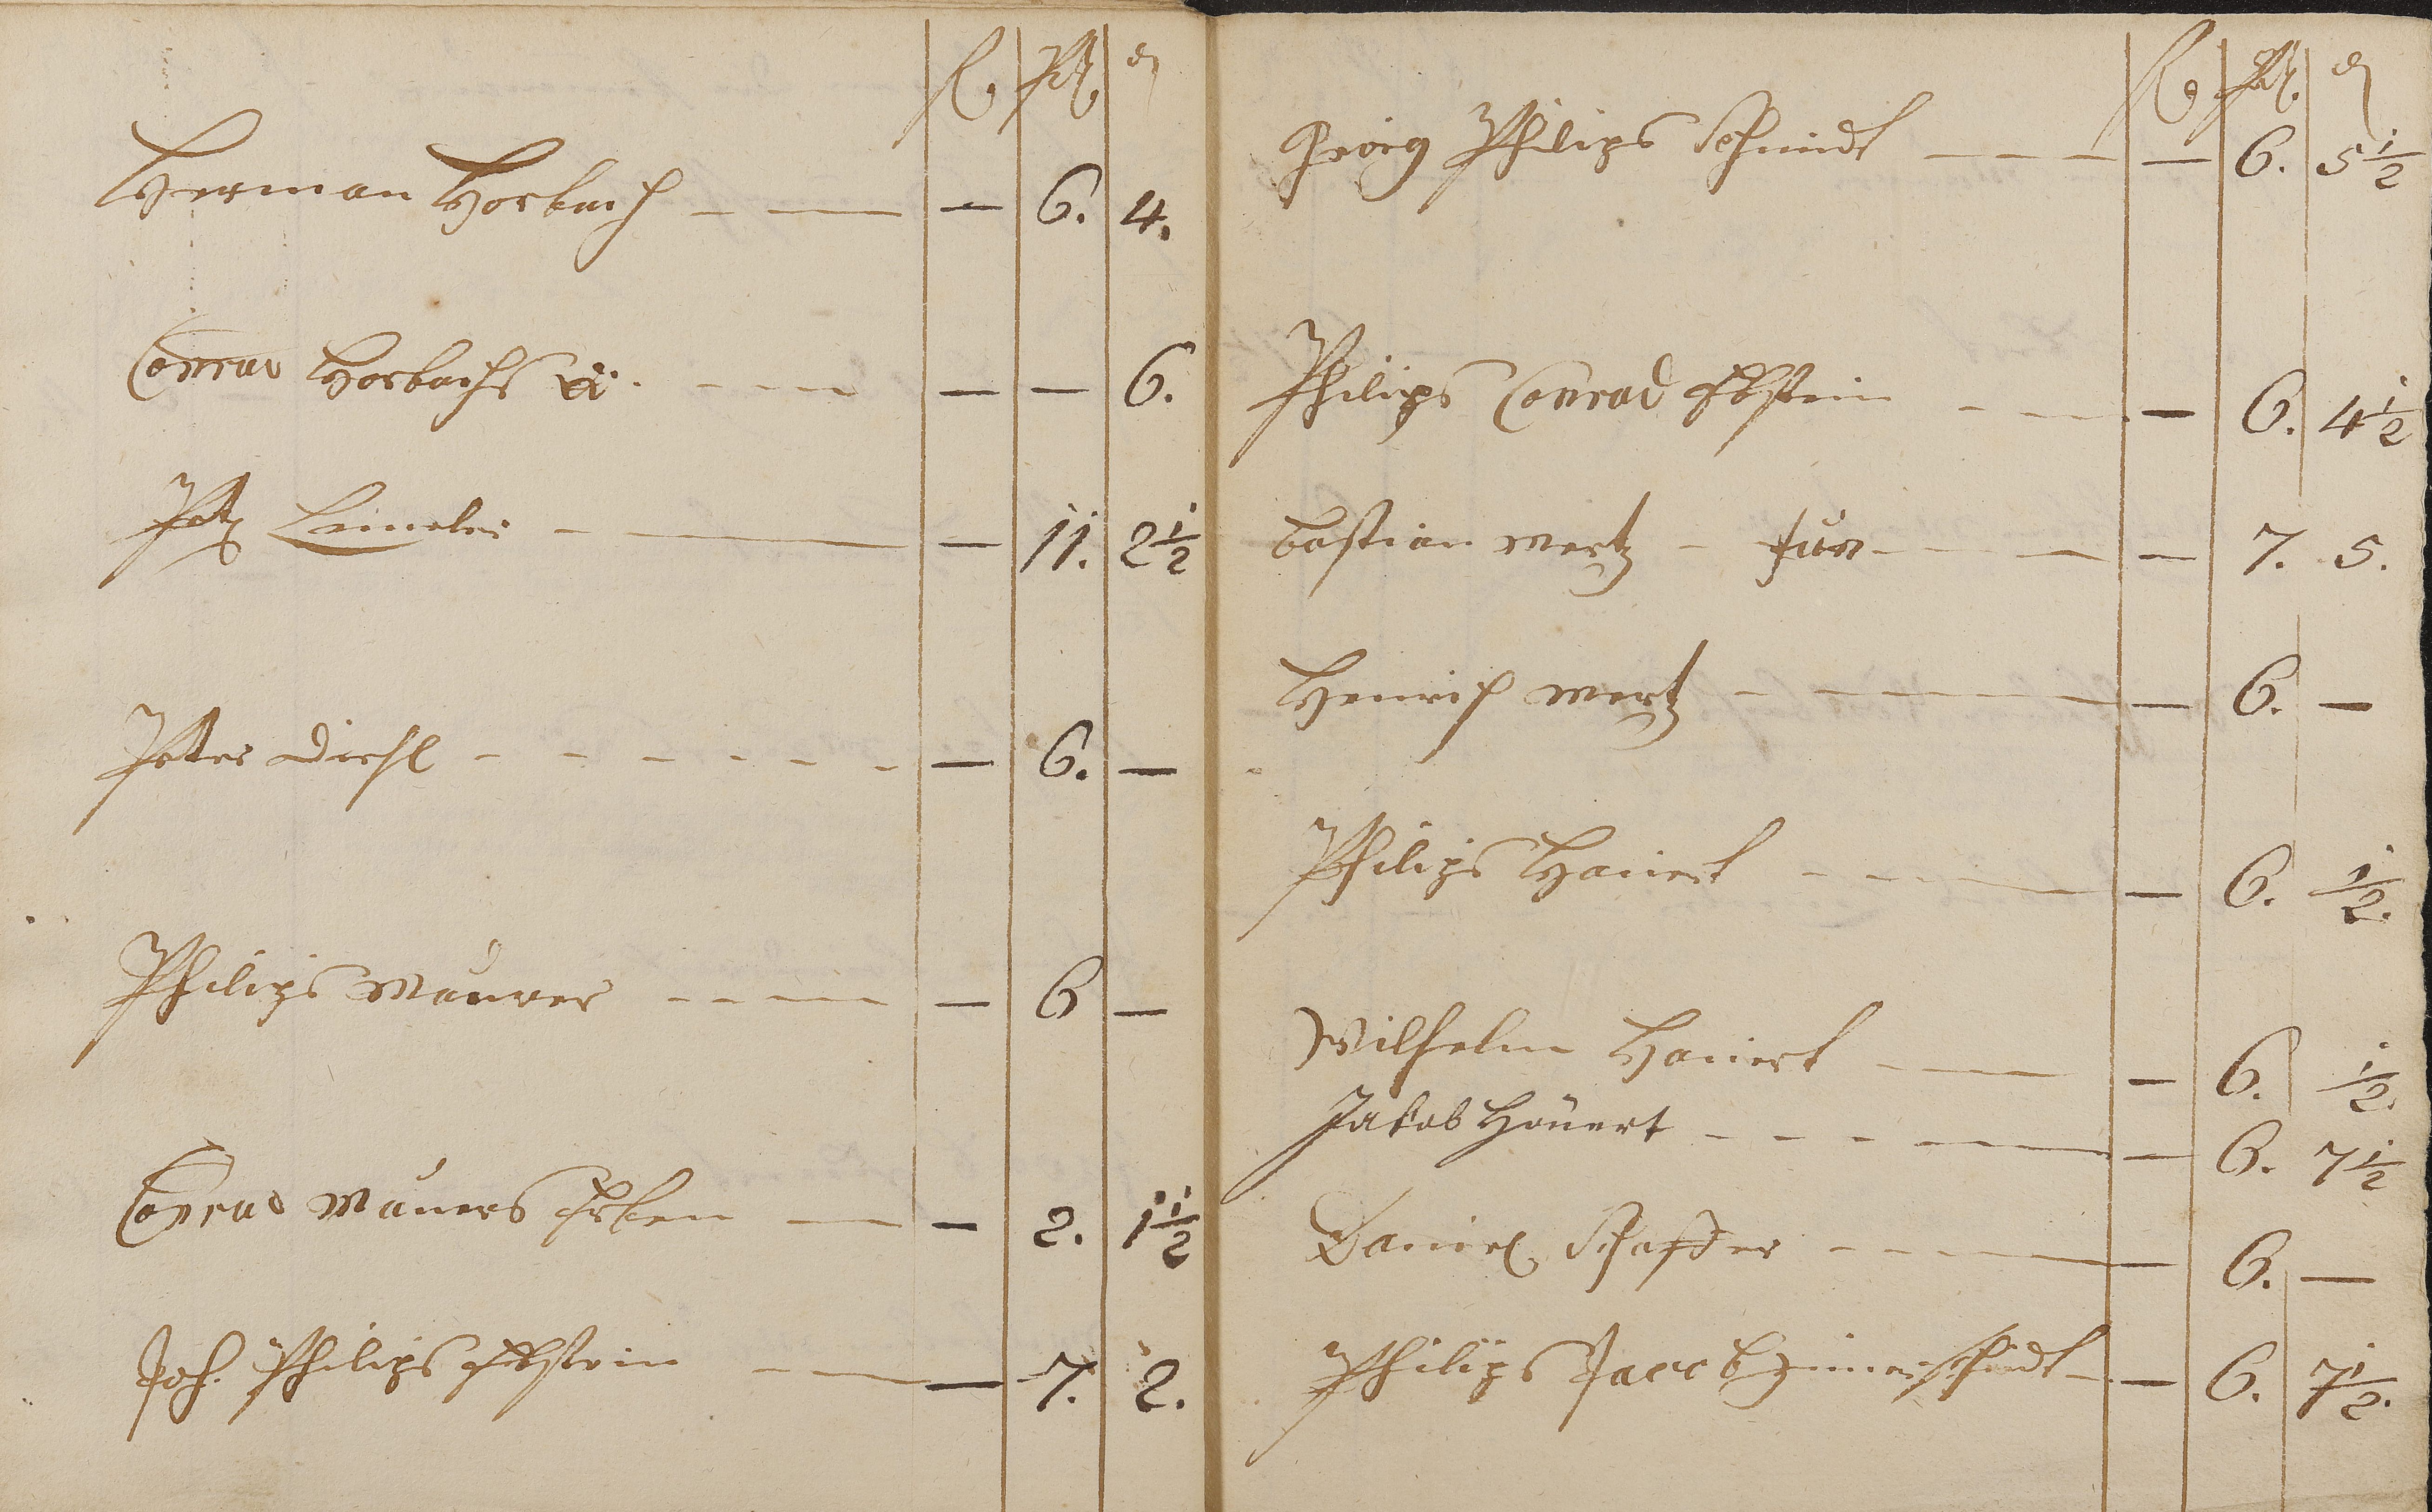 fl. Btz. d
Herman Horbach - — — — 6. 4.
Conrad Horbachs - - — — — 6.
Pet: - — — 11. 2½
Peter Diehl - - - - - - — 6. —
Philips Maurer - - — — — 6 —
Conrad Maurers Erben — — — 2. 1½
Joh. Philips Ebstein — — — 7. 2.
fl. d
Georg Philips Schmidt — — — — 6. 5½
Philips Conrad Ebstein - — — 6. 4½
Bastian Mertz - Jun - - — — 7. 5.
Henrich Mertz - - — — 6. —
Philips Hauert - - — — 6. ½.
Wilhelm Hauert - — — — 6. ½.
Jakob Hauert - - - — — 6. 7½
Daniel Schaffer - - — — 6. —
Philips Jacob - — 6. 7½.